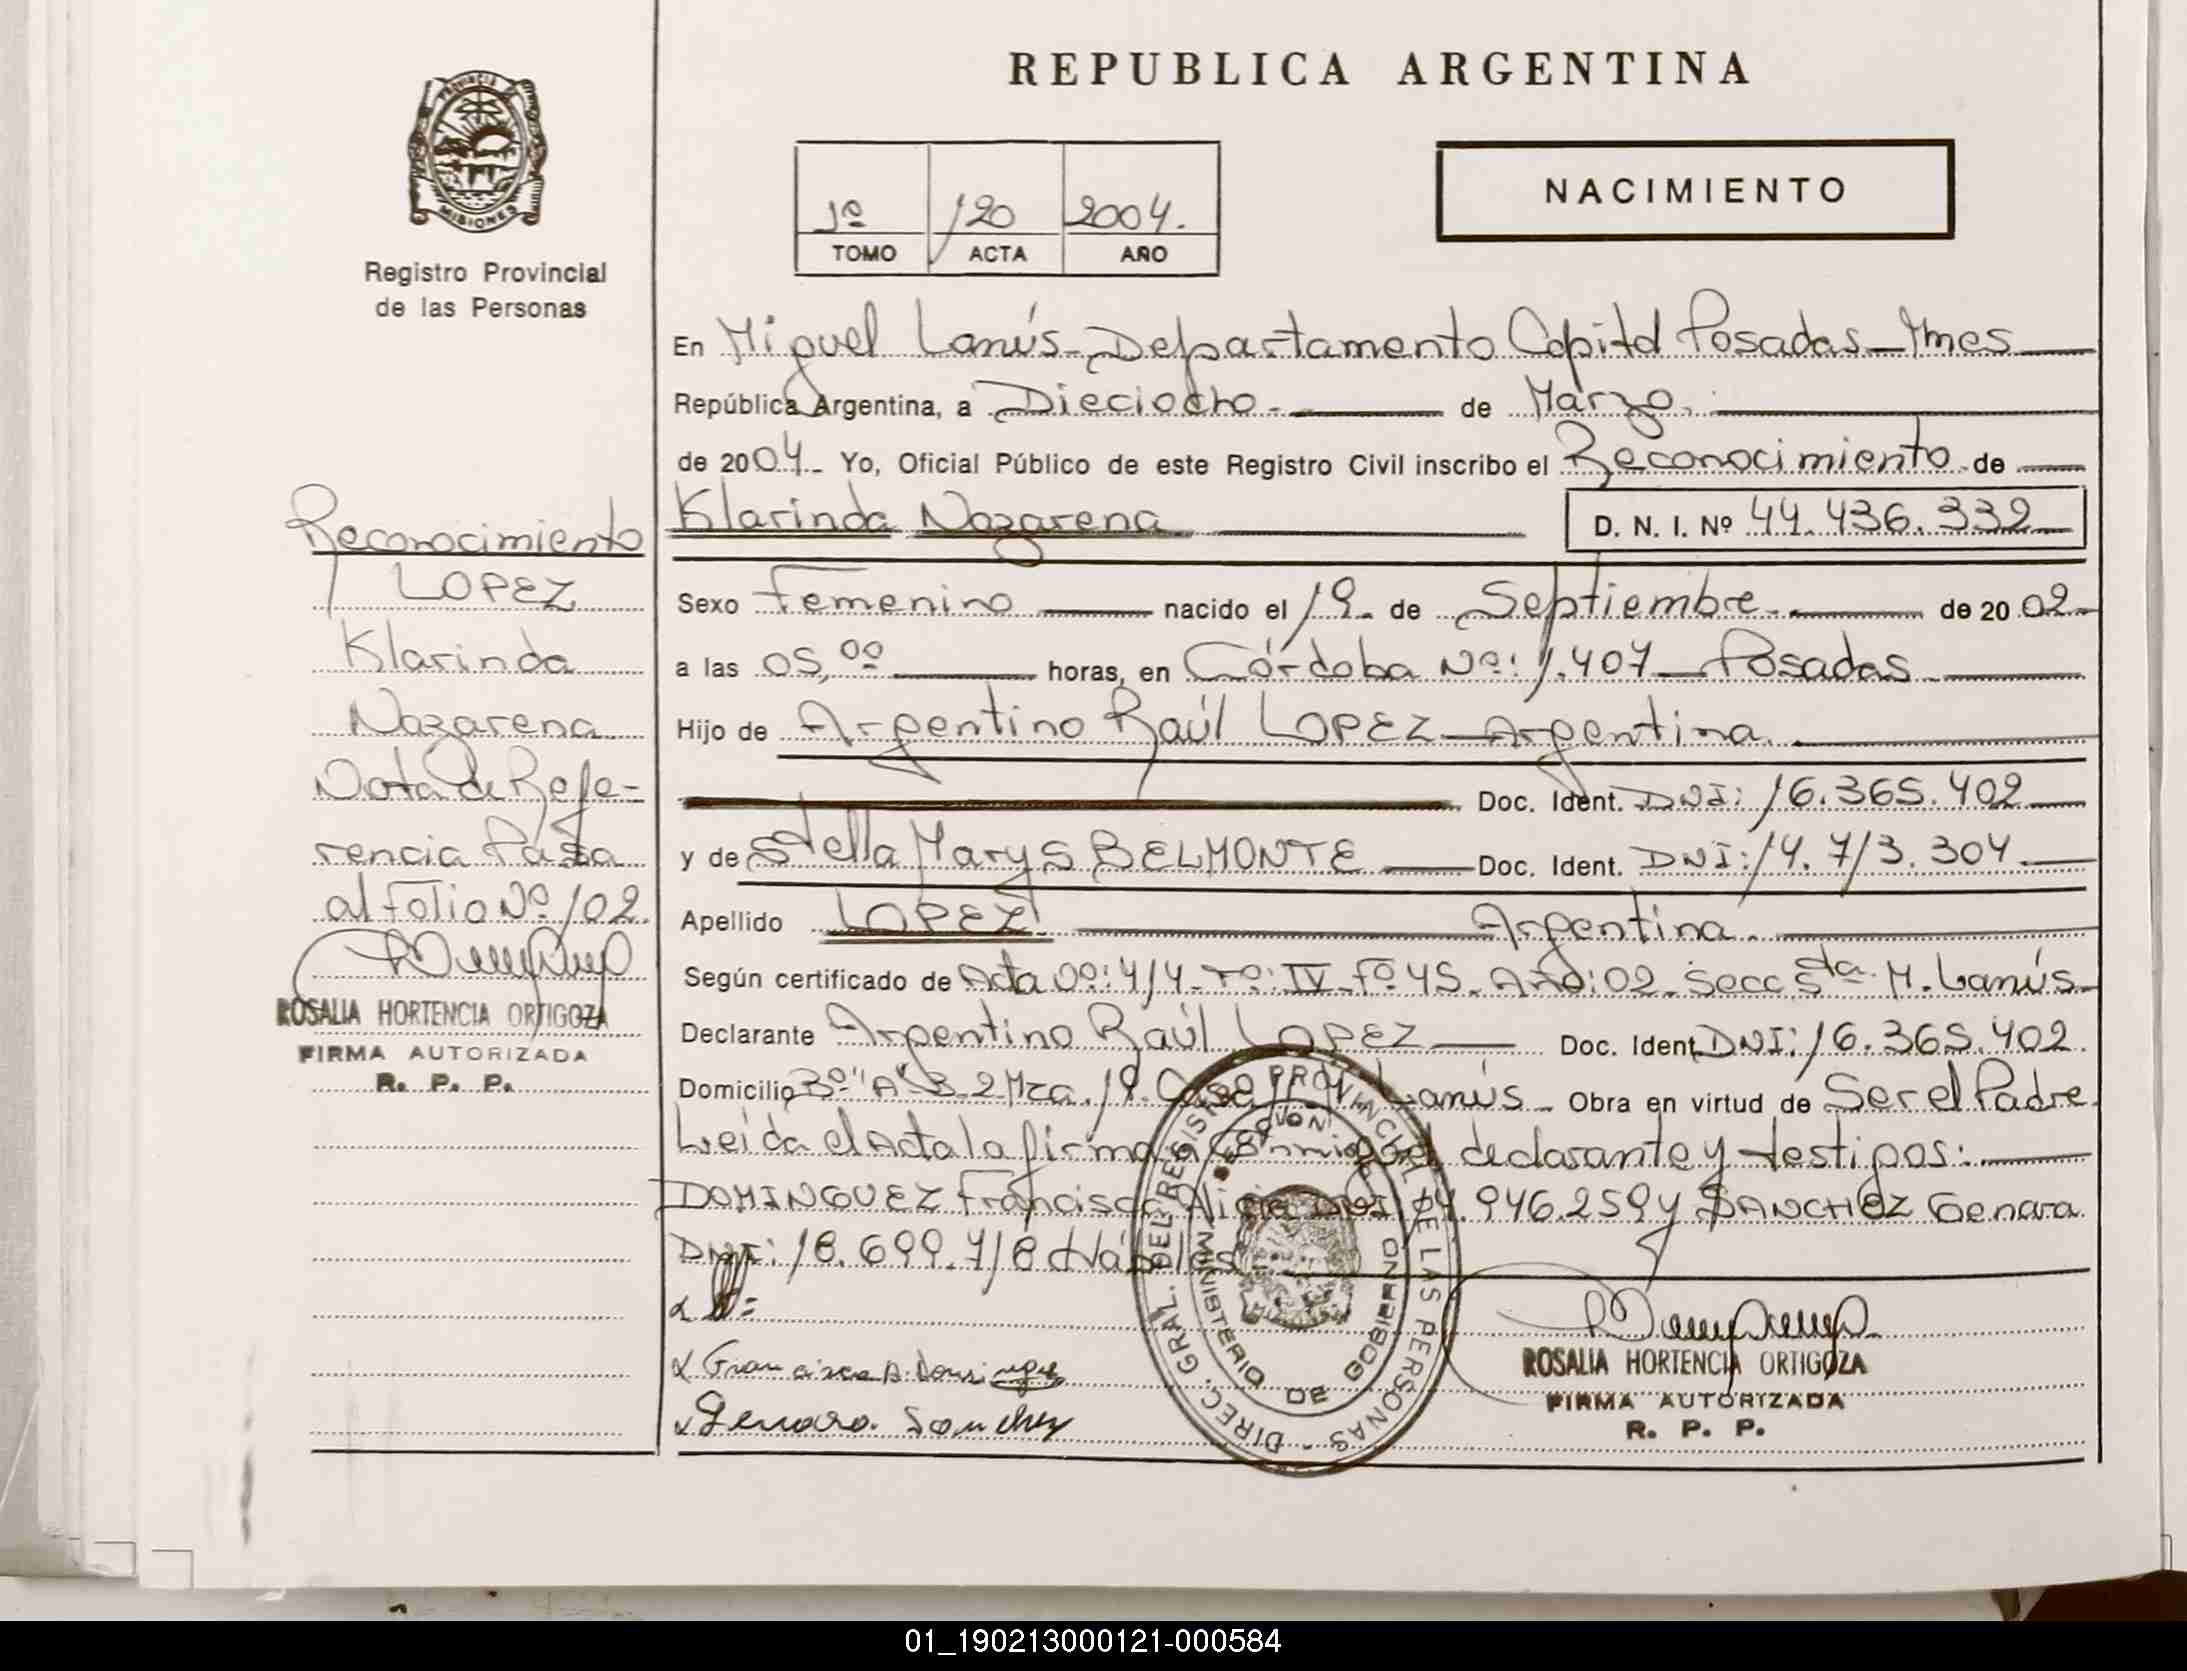 REPUBLICA ARGENTINA
PROVINCIA DE
MISIONES
Registro Provincial
de las Personas
1º 120 2004.
TOMO ACTA AÑO
NACIMIENTO
En Miguel Lanús - Departamento Capital Posadas - Mnes
República Argentina, a Dieciocho. de Marzo.
de 2004. Yo, Oficial Público de este Registro Civil inscribo el Reconocimiento de
Klarinda Nazarena D. N. I. Nº 44.436.332
Sexo Femenino nacido el 19. de Septiembre. de 2002
a las 05,00 horas, en Córdoba Nº: 1.407 - Posadas
Hijo de Argentino Raúl LOPEZ - Argentina.
Doc. Ident. DNI: 16.365.402
y de Stella Marys BELMONTE Doc. Ident. DNI: 14.713.304
Apellido LOPEZ Argentina.
Según certificado de Acta Nº: 414 - Tº: IV - Fº 45 - Año: 02 - Secc 5ta. M. Lanús
Declarante Argentino Raúl LOPEZ Doc. Ident DNI: 16.365.402.
Domicilio 3º "A" B. 2 Mza. 19. Casa Lanús - Obra en virtud de Ser el Padre.
Leída el Acta la firman Conmigo el declarante y testigos:
DOMINGUEZ Francisca Alicia DNI 04.946.259 y SANCHEZ Genara
DNI: 18.699.718 Hábiles
Francisca A. Domingu
Genara. Sanchez
DIREC. GRAL. DEL REGISTRO PROVINCIAL DE LAS PERSONAS
MINISTERIO DE GOBIERNO
ROSALIA HORTENCIA ORTIGOZA
FIRMA AUTORIZADA
R. P. P.
Reconocimiento
LOPEZ
Klarinda
Nazarena
Nota de Refe-
rencia Pasa
al Folio Nº 102.
ROSALIA HORTENCIA ORTIGOZA
FIRMA AUTORIZADA
R. P. P.
01_190213000121-000584